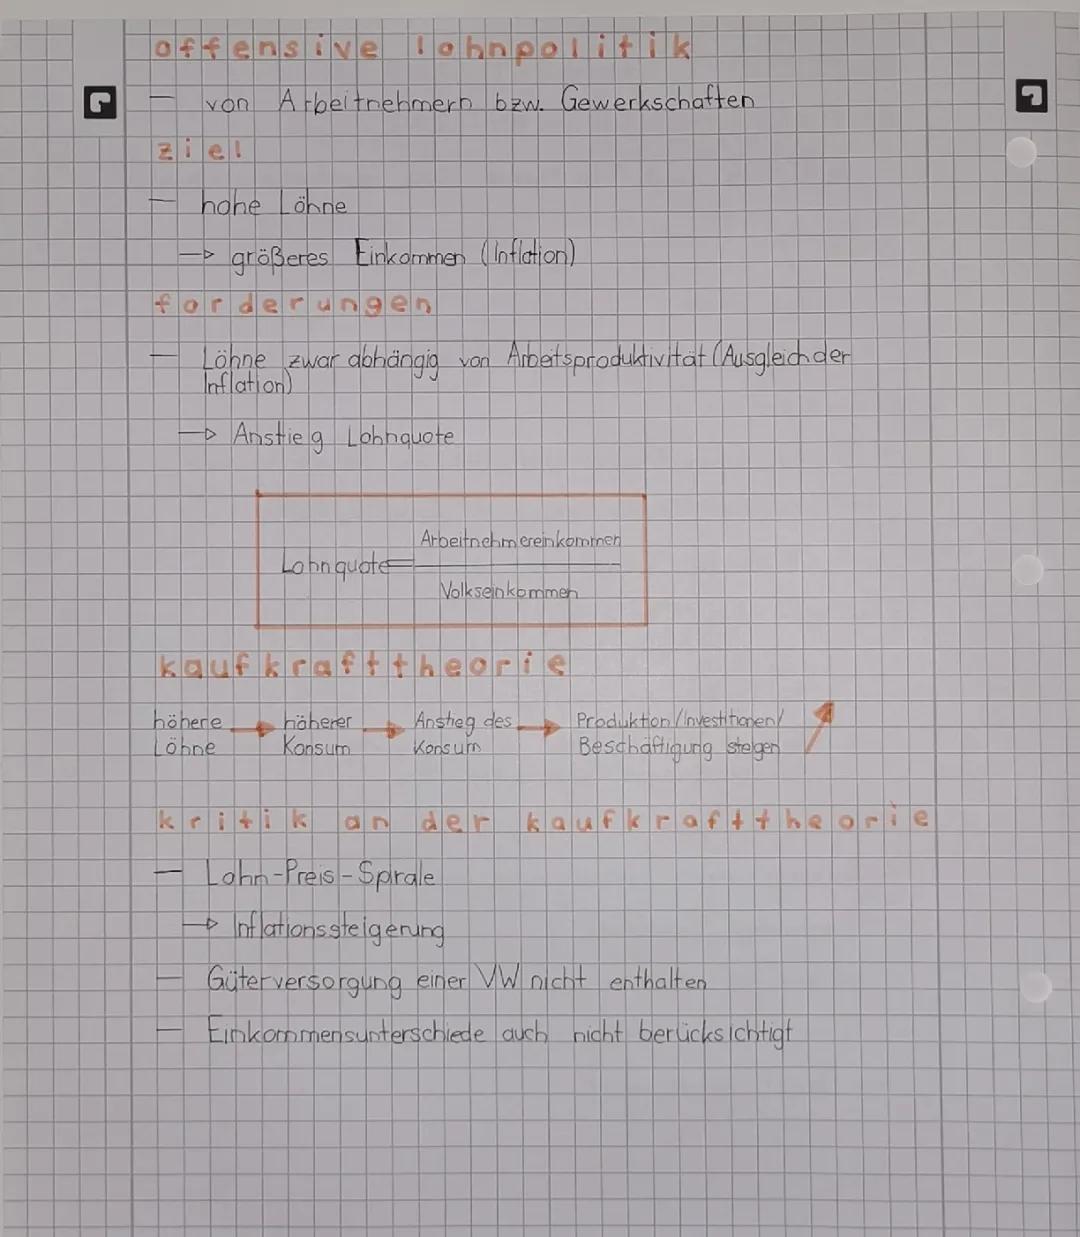 offensive lohnpolitik
— von Arbeitnehmern bzw. Gewerkschaften
ziel
— hohe Löhne
→ größeres Einkommen (Inflation)
forderungen
— Löhne zwar abhängig von Arbeitsproduktivität (Ausgleich der
Inflation)
→ Anstieg Lohnquote
Arbeitnehmereinkommen
Lohnquote=
Volkseinkommen
kaufkrafttheorie
höhere → höherer → Anstieg des → Produktion/Investitionen/
Löhne Konsum Konsum Beschäftigung steigen
kritik an der kaufkrafttheorie
— Lohn-Preis-Spirale
→ Inflationssteigerung
— Güterversorgung einer VW nicht enthalten
— Einkommensunterschiede auch nicht berücksichtigt